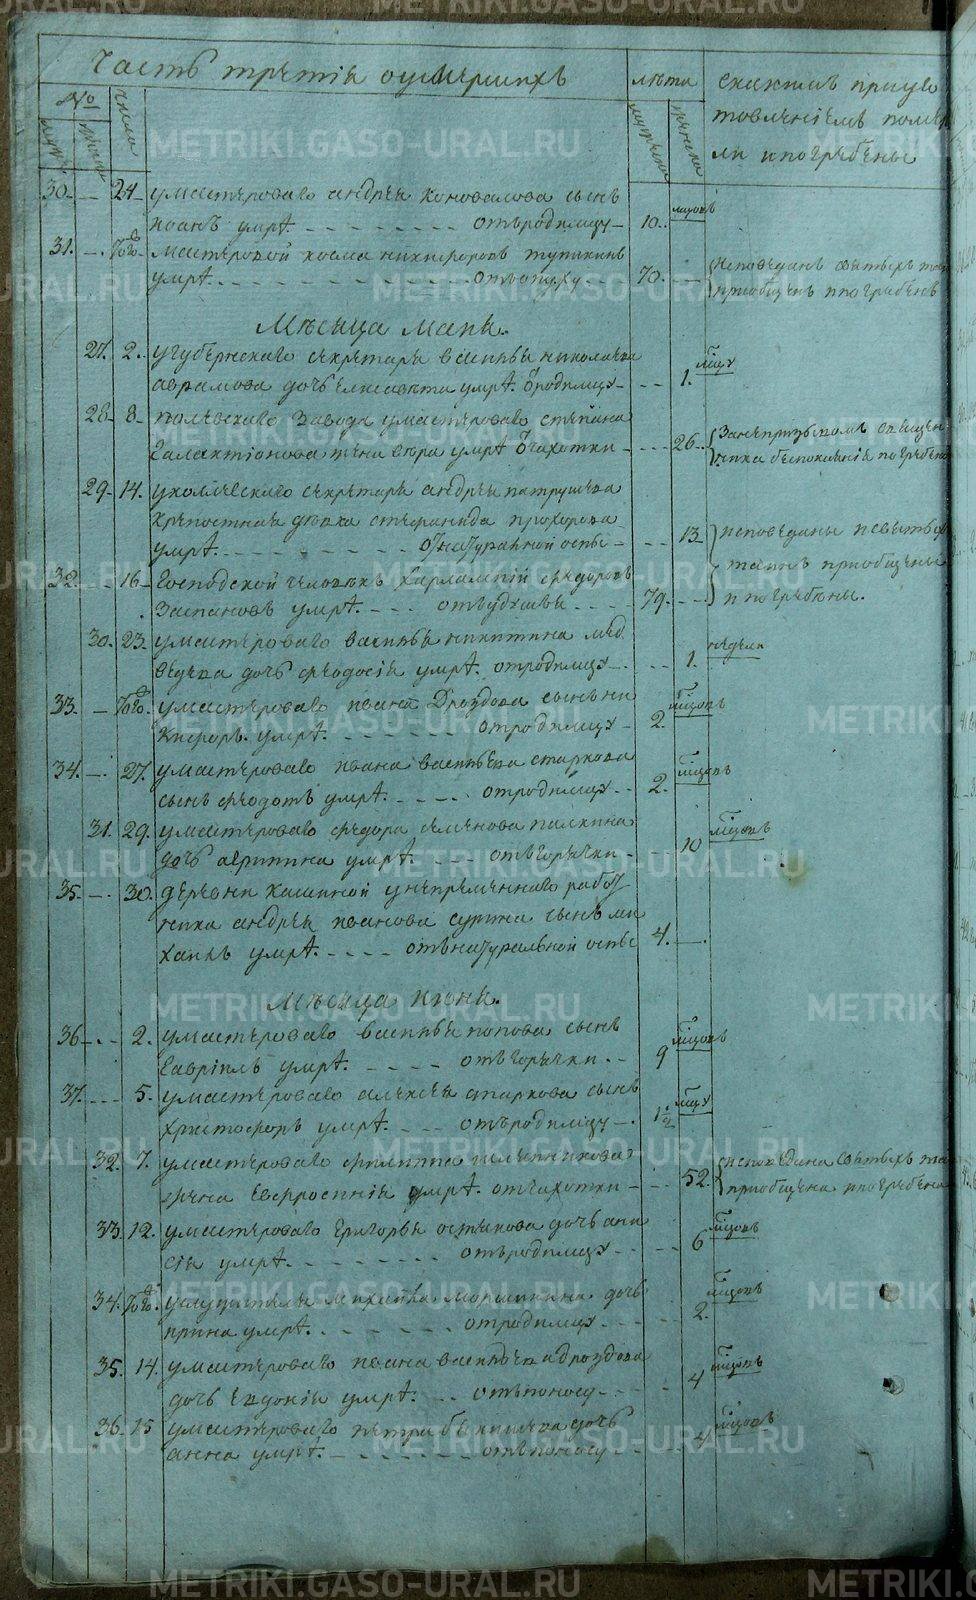 Часть третія о умершихъ
лѣта
скакимъ пріуго
товленіемъ помер
ли и погребены
№
числа
мужеска
женска
мужеска
женска
30. 24 умастероваго андрея коновалова сынъ
иоанъ умре. отъ родимцу 10. мцовъ
31. того мастеровой косма никифоровъ тупикинъ
умре. отъ опуху 70. исповѣданъ святыхъ таи
приобщенъ и погребенъ
Мѣсяца маия.
27. 2. угубернскаго секретаря василья николаева
аврамова дочь елисавета умре. ѿ родимцу 1. мцу
28. 8. полевскаго завода умастероваго степана
галактіонова жена умре ѿ чахотки 26. За непризывомъ священ
ника безпокаянія погребена
29. 14. уколлежскаго секретаря андрея патрушева
крепостная дѣвка стефанида прохорова
умре. отнатуральной оспы 13 исповеданы исвятыхъ
таинъ приобщены
и погребены.
32. 16 Господской человѣкъ харлампій федоровъ
умре. отъ удушья 79.
30. 23. умастероваго василья никитина мѣд
ведева дочь феодосія умре. отродимцу 1. недели
33. того умастероваго ивана Дроздова сынъ ни
кифоръ умре. отродимцу 2. мцовъ
34. 27. умастероваго ивана васильева старкова
сынъ феодотъ умре. отродимцу 2. мцовъ
31. 29. умастероваго федора семенова палкина
дочь агрипина умре. отъ горячки 10 мцовъ
35. 30. деревни кашиной унепременнаго работ
ника андрея иванова сурина сынъ ми
хаилъ умре. отънатуральной оспы 4.
Мѣсяца июня.
36 2. умастероваго василья попова сынъ
гавріилъ умре. отъ горячки 9 мцовъ
37. 5. умастероваго алексея старкова сынъ
христофоръ умре. отъ родимцу 1½ мцу
32. 7. умастероваго филиппа
жена евфросинія умре. отчахотки 52. исповѣдана святыхъ та
приобщена и погребена
33. 12. умастероваго григорья остякова дочь ани
сія умре. отъ родимцу 6 мцовъ
34. того услужителя михаила морщинина дочь
ирина умре. отродимцу 2. мцовъ
35. 14. умастероваго ивана васильева дроздова
дочь евдокія умре. отъ поносу 4 мцовъ
36 15 умастероваго петра дочь
анна умре. отъ поносу 4 мцовъ
METRIKI.GASO-URAL.RU